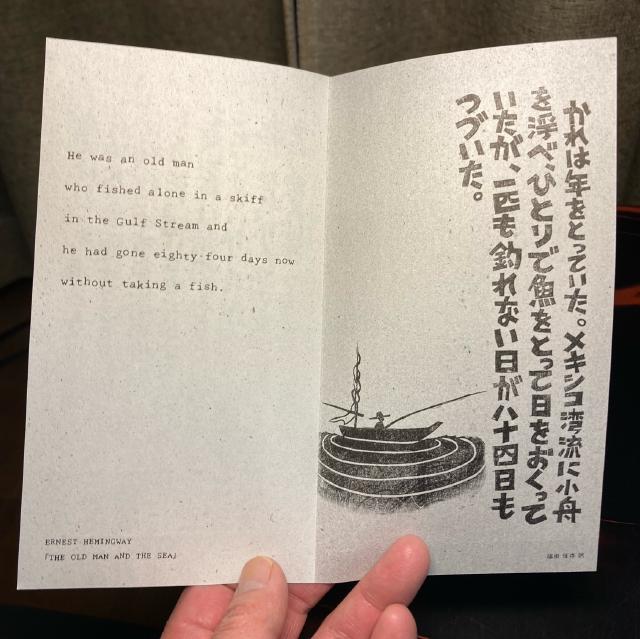 He was an old man
who fished alone in a skiff
in the Gulf Stream and
he had gone eighty-four days now
without taking a fish.
ERNEST HEMINGWAY
『THE OLD MAN AND THE SEA』
かれは年をとっていた。メキシコ湾流に小舟
を浮べ、ひとりで魚をとって日をおくって
いたが、一匹も釣れない日が八十四日も
つづいた。
福田 恆存 訳